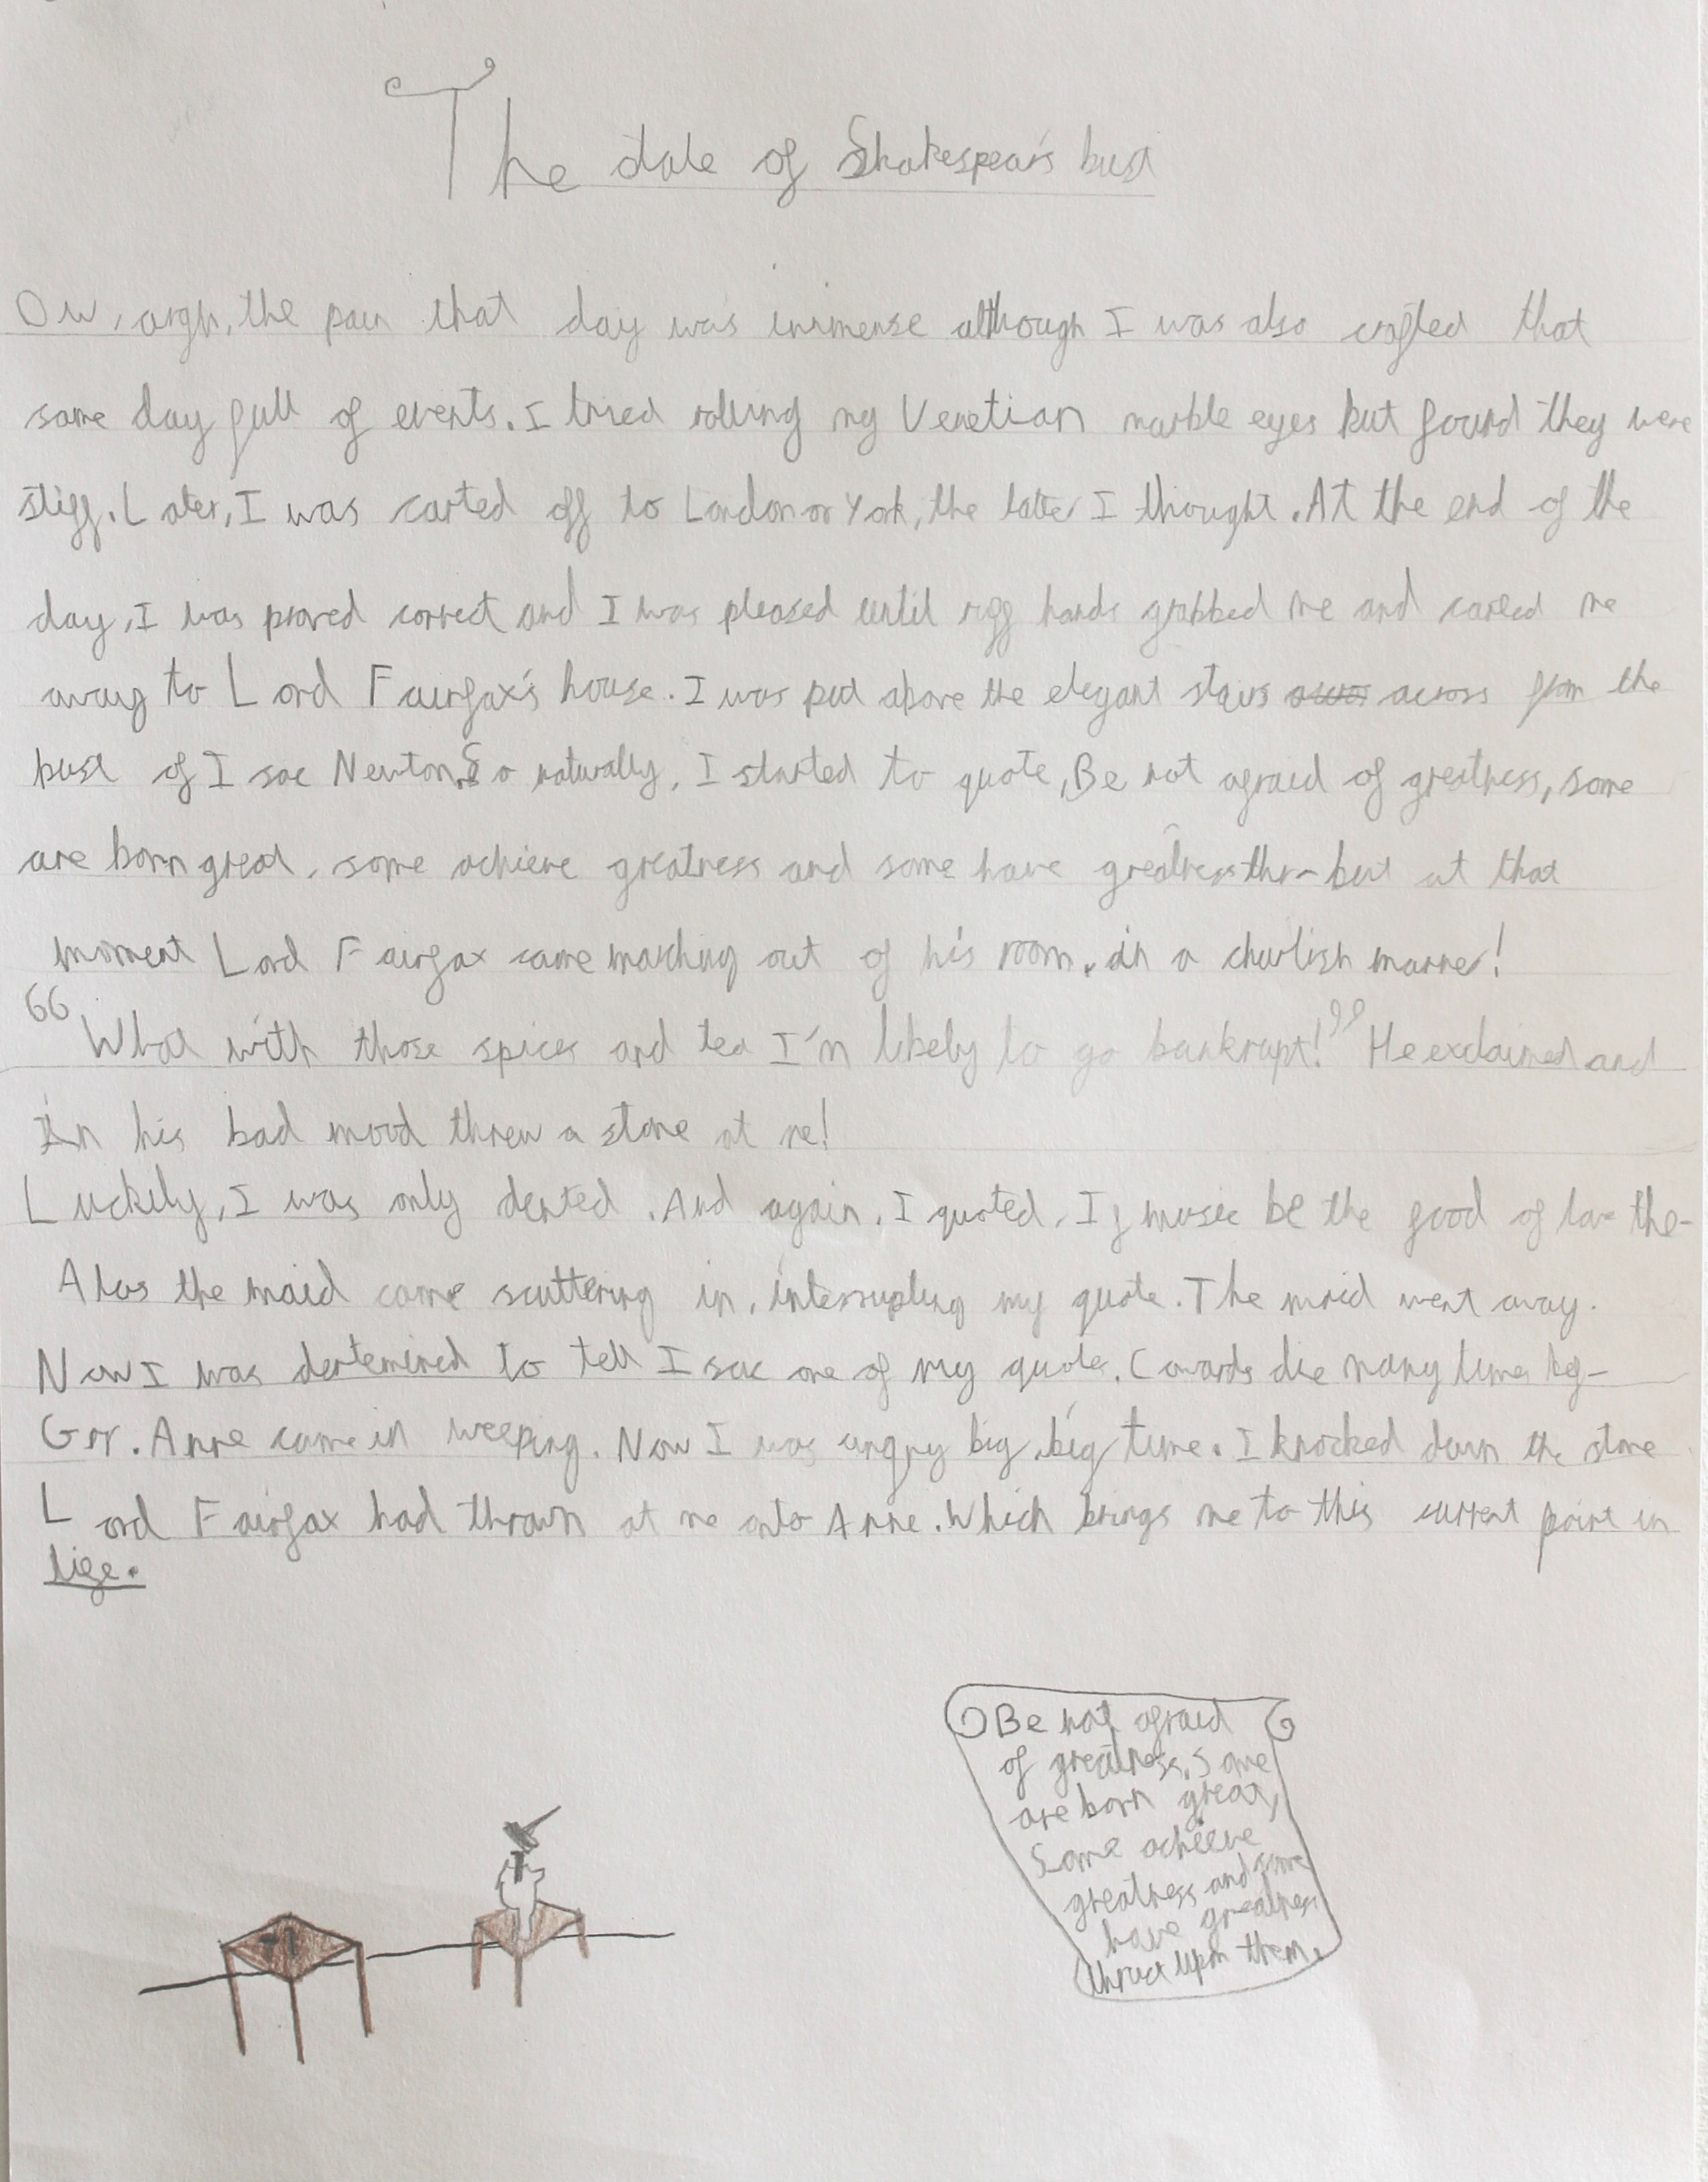 The tale of Shakespear's bust
Ow, argh, the pain that day was immense although I was also crafted that
same day full of events. I tried rolling my Venetian marble eyes but found they were
stiff. Later, I was carted off to London or York, the latter I thought. At the end of the
day, I was proved correct and I was pleased until ruff hands grabbed me and carried me
away to Lord Fairfax's house. I was put above the elegant stairs across from the
bust of Isac Newton. So naturally, I started to quote, Be not afraid of greatness, some
are born great, some achieve greatness and some have greatness thr- but at that
moment Lord Fairfax came marching out of his room, in a churlish manner!
"What with those spices and tea I'm likely to go bankrupt!" He exclaimed and
In his bad mood threw a stone at me!
Luckily, I was only dented. And again, I quoted, If music be the food of love the-
Alas the maid came scuttering in, interrupting my quote. The maid went away.
Now I was dertemined to tell Isac one of my quotes. Cowards die many times bef-
Grr. Anne came in weeping. Now I was angry big, big time. I knocked down the stone
Lord Fairfax had thrown at me onto Anne. Which brings me to this current point in
life.
Be not afraid
of greatness. Some
are born great,
Some achieve
greatness and some
have greatness
thrust upon them.